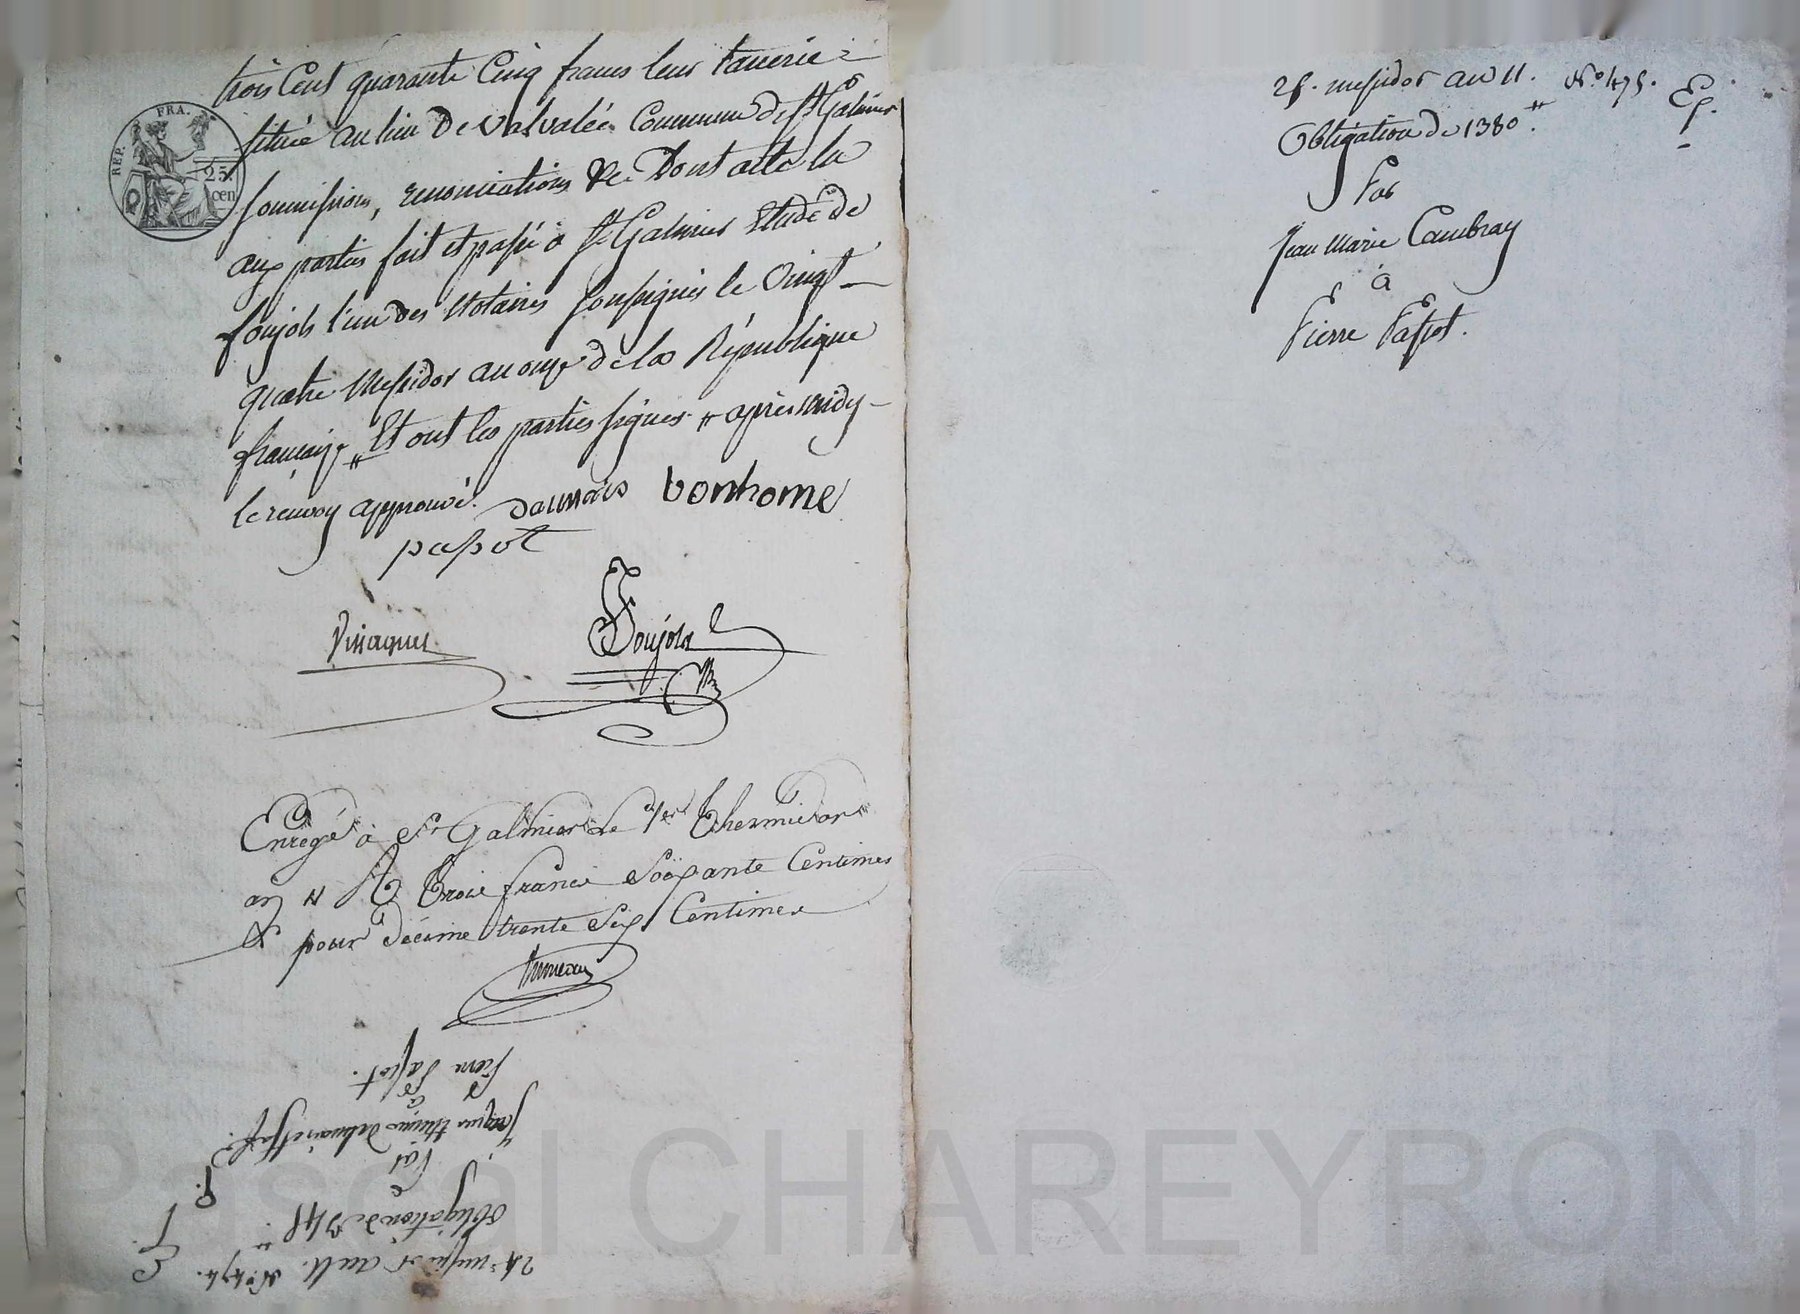 trois Cent quarante Cinq francs leur tannerie
située au lieu De Valvalée Commune de St Galmier
soumissions, renonciations &c. Dont acte lu
aux parties fait et passé à St Galmier Etude de
Foujols l'un des Notaires soussignés le Vingt
quatre Messidor an onze de la République
française Et ont les parties signés " après midy
le renvoy approuvé. bonhome
passot
Vissaguet
Foujols
REP. FRA.
25 cen
Enregé à St Galmier le 1er Thermidor
an 11 R Trois francs Soixante Centimes
& pour décime trente Six Centimes
24 messidor an 11. No 474.
Obligation de 345
Par
Jacques
à
Pierre Passot.
25. messidor an 11. No 475.
Obligation de 1380
Par
Jean Marie Cambray
à
Pierre Passot.
Pascal CHAREYRON